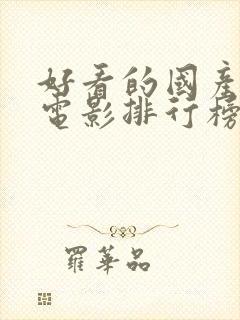 好看的國產
電影排行榜
羅華品